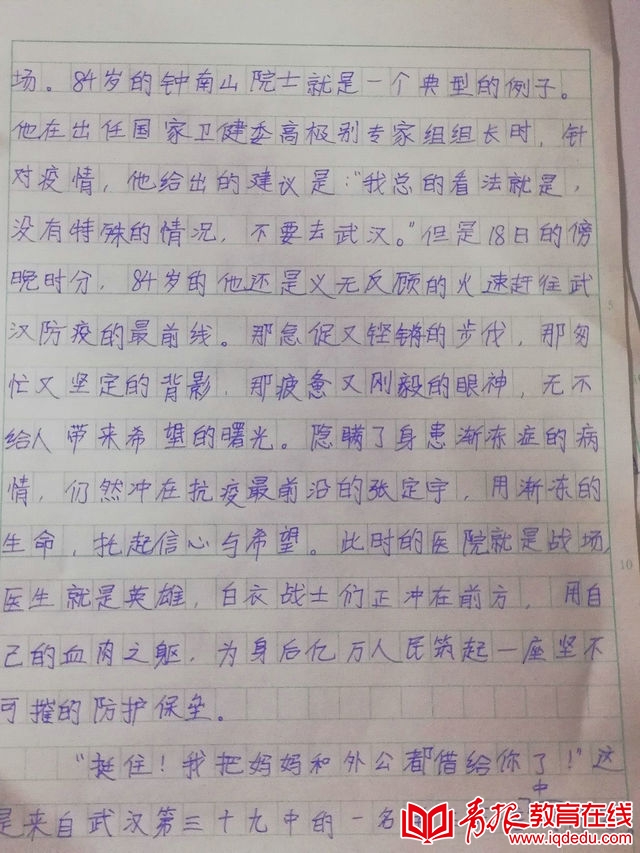 场。84岁的钟南山院士就是一个典型的例子。
他在出任国家卫健委高极别专家组组长时，针
对疫情，他给出的建议是："我总的看法就是，
没有特殊的情况，不要去武汉。"但是18日的傍
晚时分，84岁的他还是义无反顾的火速赶往武
汉防疫的最前线。那急促又铿锵的步伐，那匆
忙又坚定的背影，那疲惫又刚毅的眼神，无不
给人带来希望的曙光。隐瞒了身患渐冻症的病
情，仍然冲在抗疫最前沿的张定宇，用渐冻的
生命，托起信心与希望。此时的医院就是战场，
医生就是英雄，白衣战士们正冲在前方，用自
己的血肉之躯，为身后亿万人民筑起一座坚不
可摧的防护保垒。
"挺住！我把妈妈和外公都借给你了！"这
是来自武汉第三十九中的一名
中
5
10
青报教育在线
www.iqdedu.com